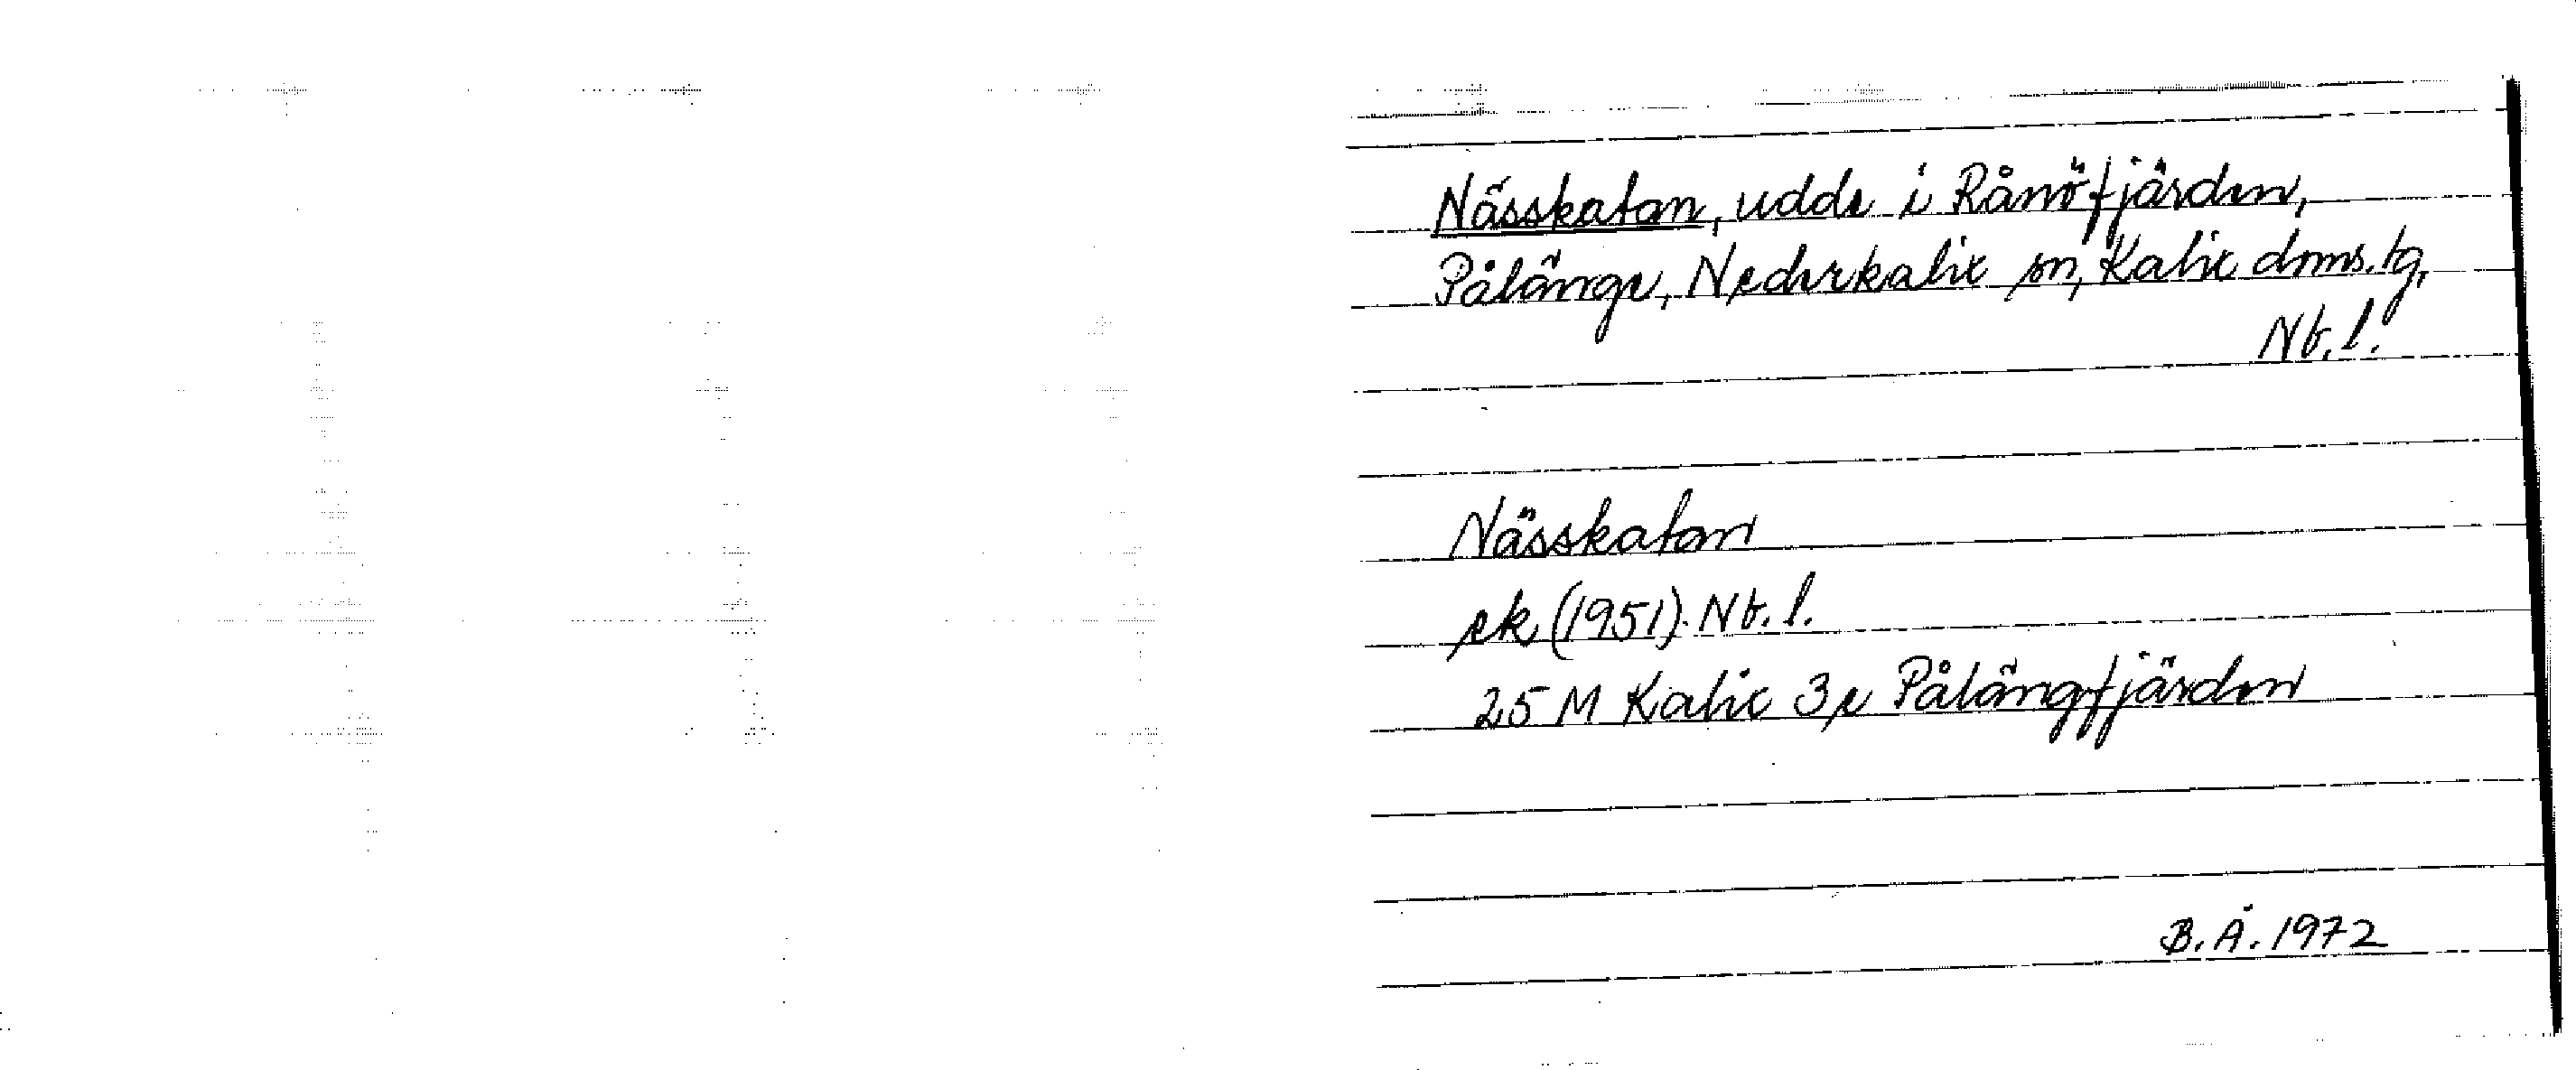 Nässkatan, udde i Rånöfjärden,
Pålänge, Nederkalix sn, Kalix doms. tg,
Nb. l.
Nässkatan
ek (1951) Nb. l.
25 M Kalix 3e Pålängfjärden
B. Å. 1972